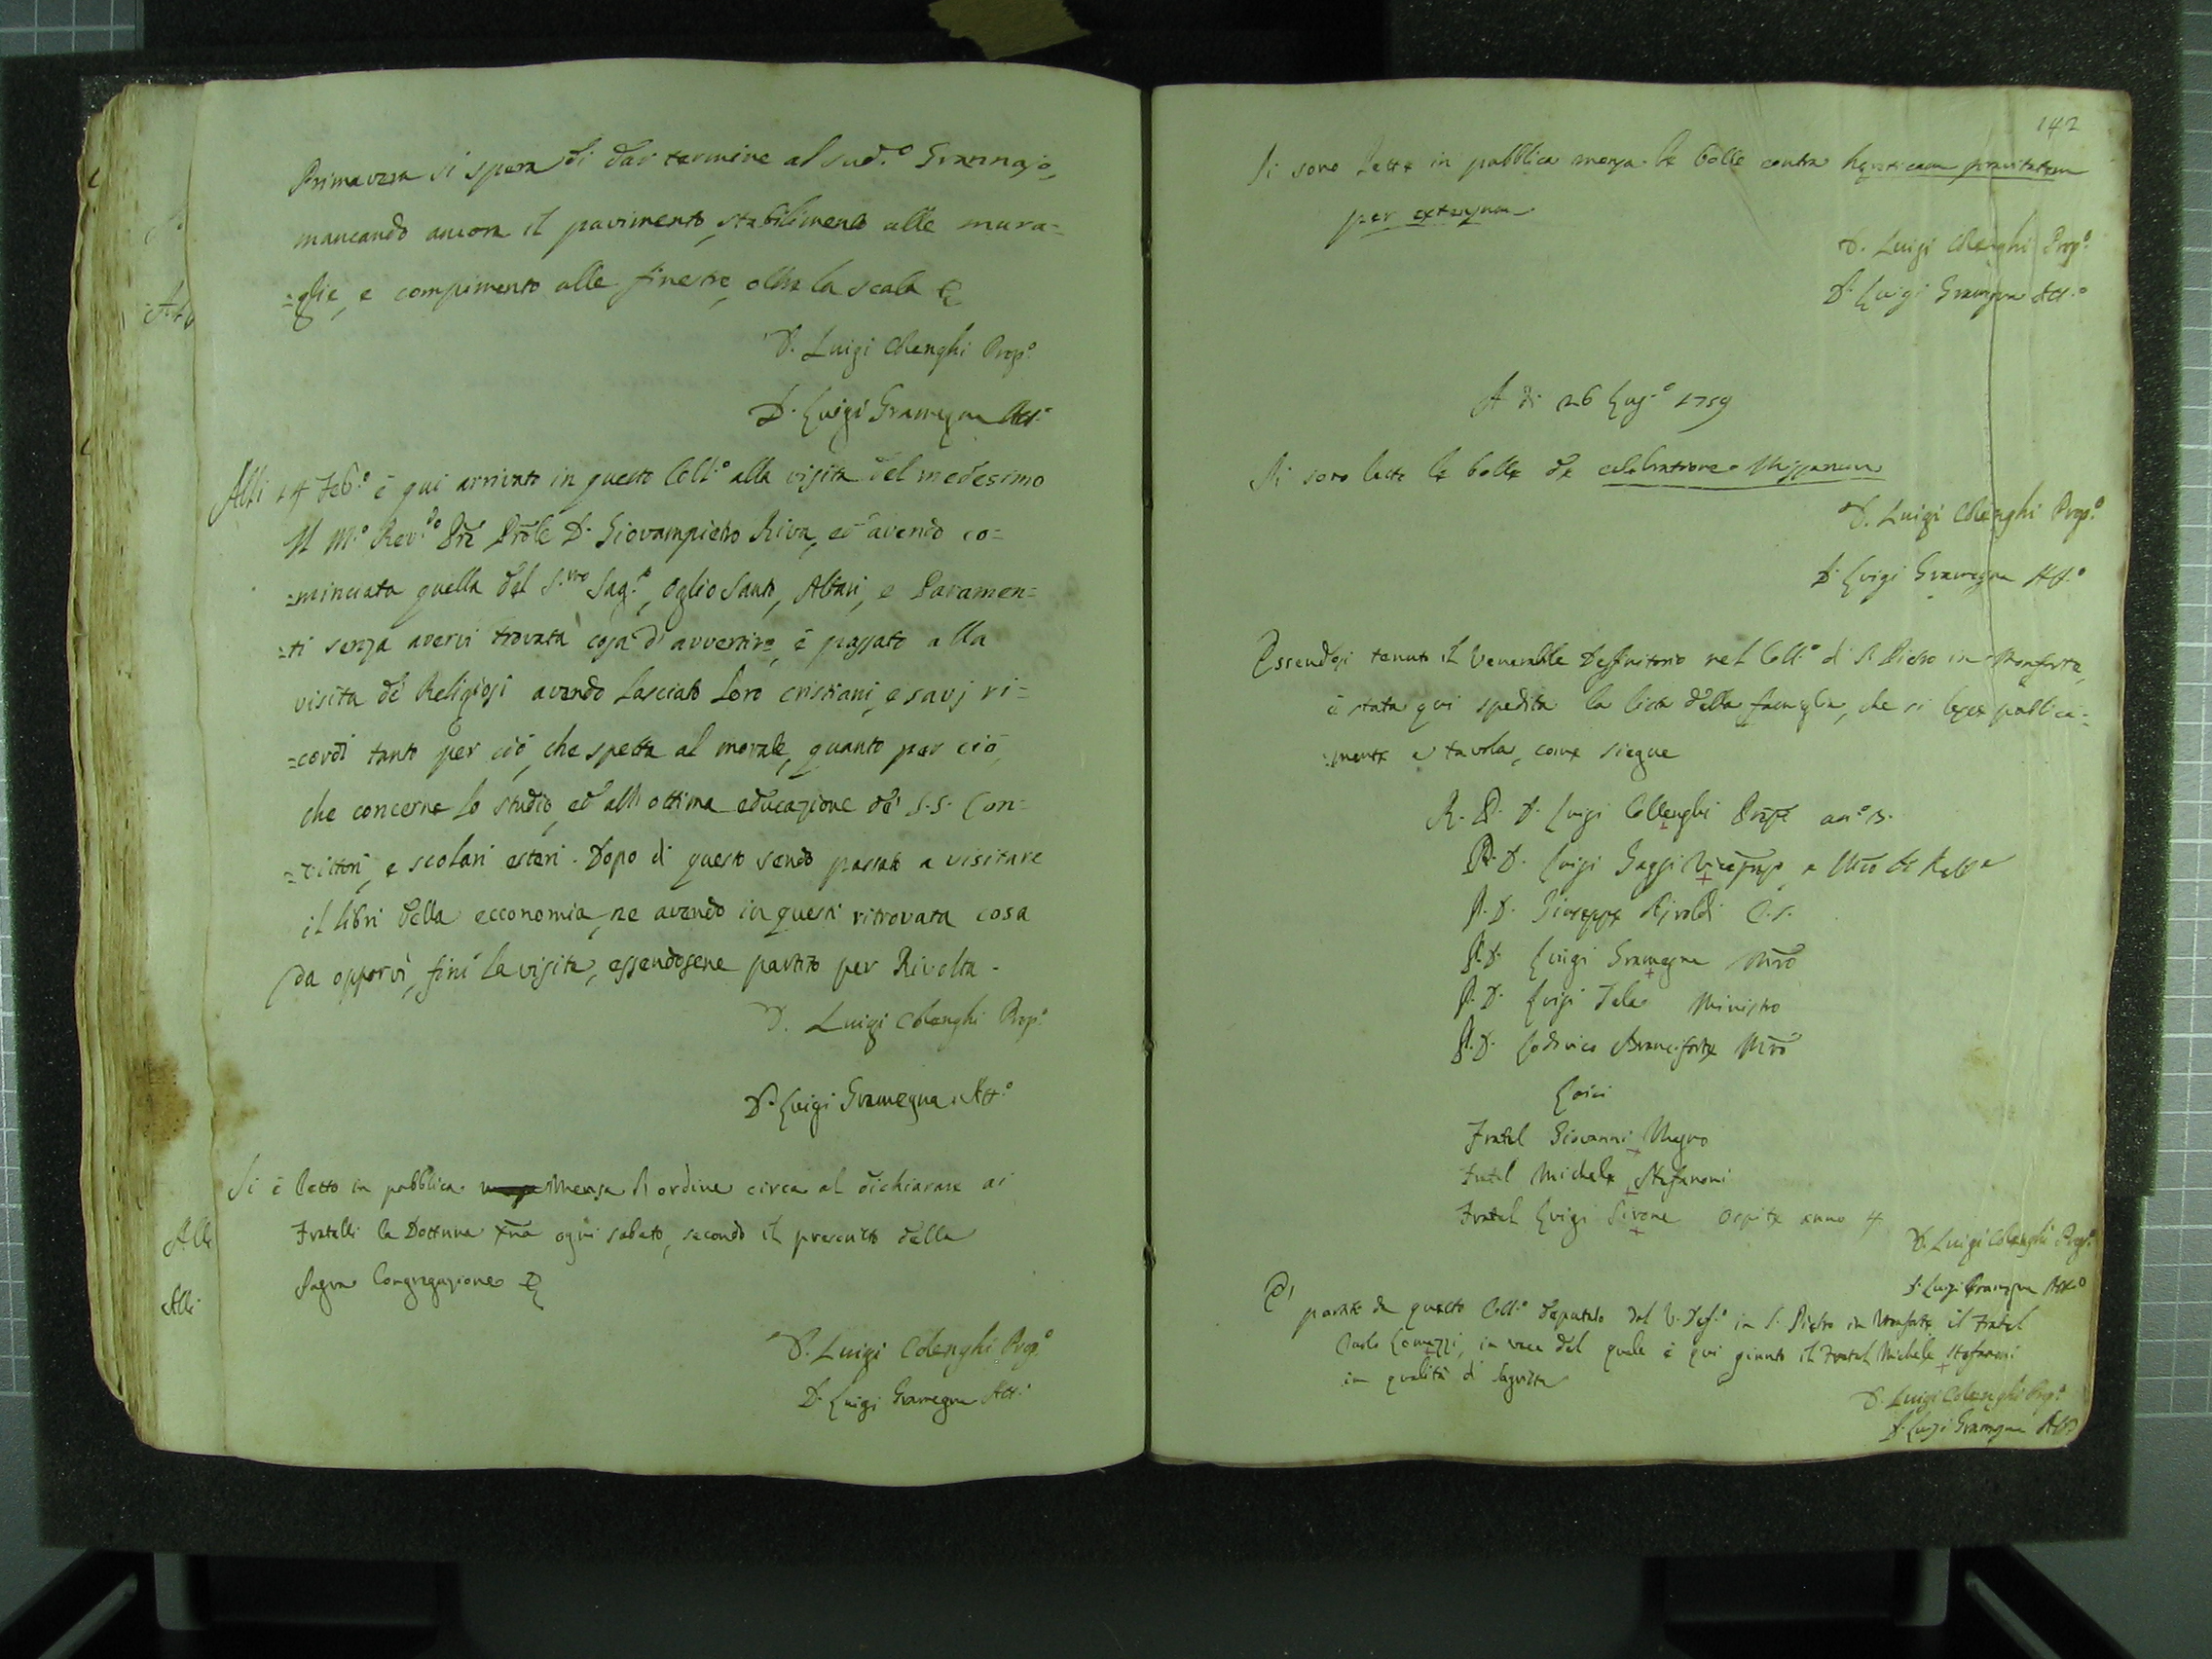 Primavera si spera di dar termine al sud.º Grannajo,
mancando ancora il pavimento, stabilimento alle mura=
=glie, e compimento alle finestre, oltre la scala &
D. Luigi Olenghi Prop.º
D. Luigi Gramegna Att.º
Alli 14 Feb.º è qui arrivato in questo Coll.º alla visita del medesimo
Il M.º Rev.do Pre Prole D. Giovampietro Riva, ed avendo co=
=minciata quella del S.mo Sag.º, Oglio Santo, Altari, e Paramen=
=ti senza avervi trovata cosa d'avvertire, è passato alla
visita de Religiosi avendo lasciato loro cristiani, e savj ri=
=cordi tanto per ciò, che spetta al morale, quanto per ciò,
che concerne lo studio, ed all'ottima educazione de' S.S. Con=
=vittori, e scolari esteri. Dopo di questo sendo passato a visitare
il libri della ecconomia, ne avendo in questi ritrovata cosa
da opporvi, finì la visita, essendosene partito per Rivolta.
D. Luigi Olenghi Prop.º
D. Luigi Gramegna Att.º
Si è letto in pubblica Mensa l'ordine circa al dichiarare ai
Fratelli la Dottrina Xna ogni sabato, secondo il prescritto della
Sagra Congregazione &
D. Luigi Olenghi Prop.º
D. Luigi Gramegna Att.º
Alli
Alli
142
Si sono lette in pubblica mensa le bolle contra hereticam pravitatem
per extensum
D. Luigi Olenghi Prop.º
D. Luigi Gramegna Att.º
A di 26 Lug.º 1759
Si sono lette le bolle de celebratione Missarum
D. Luigi Olenghi Prop.º
D. Luigi Gramegna Att.º
Essendosi tenuto il Venerabile Deffinitorio nel Coll.º di S. Pietro in Monforte,
è stata qui spedita la lista della famiglia, che si lesse pubblica=
=mente a tavola, come siegue
R. P. D. Luigi Ollenghi Prep. an.º 3.
P. D. Luigi Gaggi Viceprep. e Mro di
P. D. Giuseppe Rivoldi C. S.
P. D. Luigi Gramegna Mro
P. D. Luigi Ministro
P. D. Lodovico Branciforte Mro
Laici
Fratel Giovanni Magno
Fratel Michele Stefanoni
Fratel Luigi Sirone Ospite anno 4
D. Luigi Olenghi Prop.º
D. Luigi Gramegna Att.º
E' partito da questo Coll.º deputato dal V. Def.º in S. Pietro in Monforte il Fratel
Paolo Lomazzi, in vece del quale è qui giunto il Fratel Michele Stefanoni
in qualità di Sagrista
D. Luigi Olenghi Prop.º
D. Luigi Gramegna Att.º